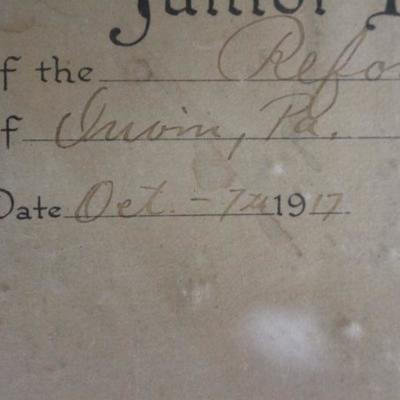 Junior
of the Refo
of Irwin, Pa.
Date Oct. - 7th 1917